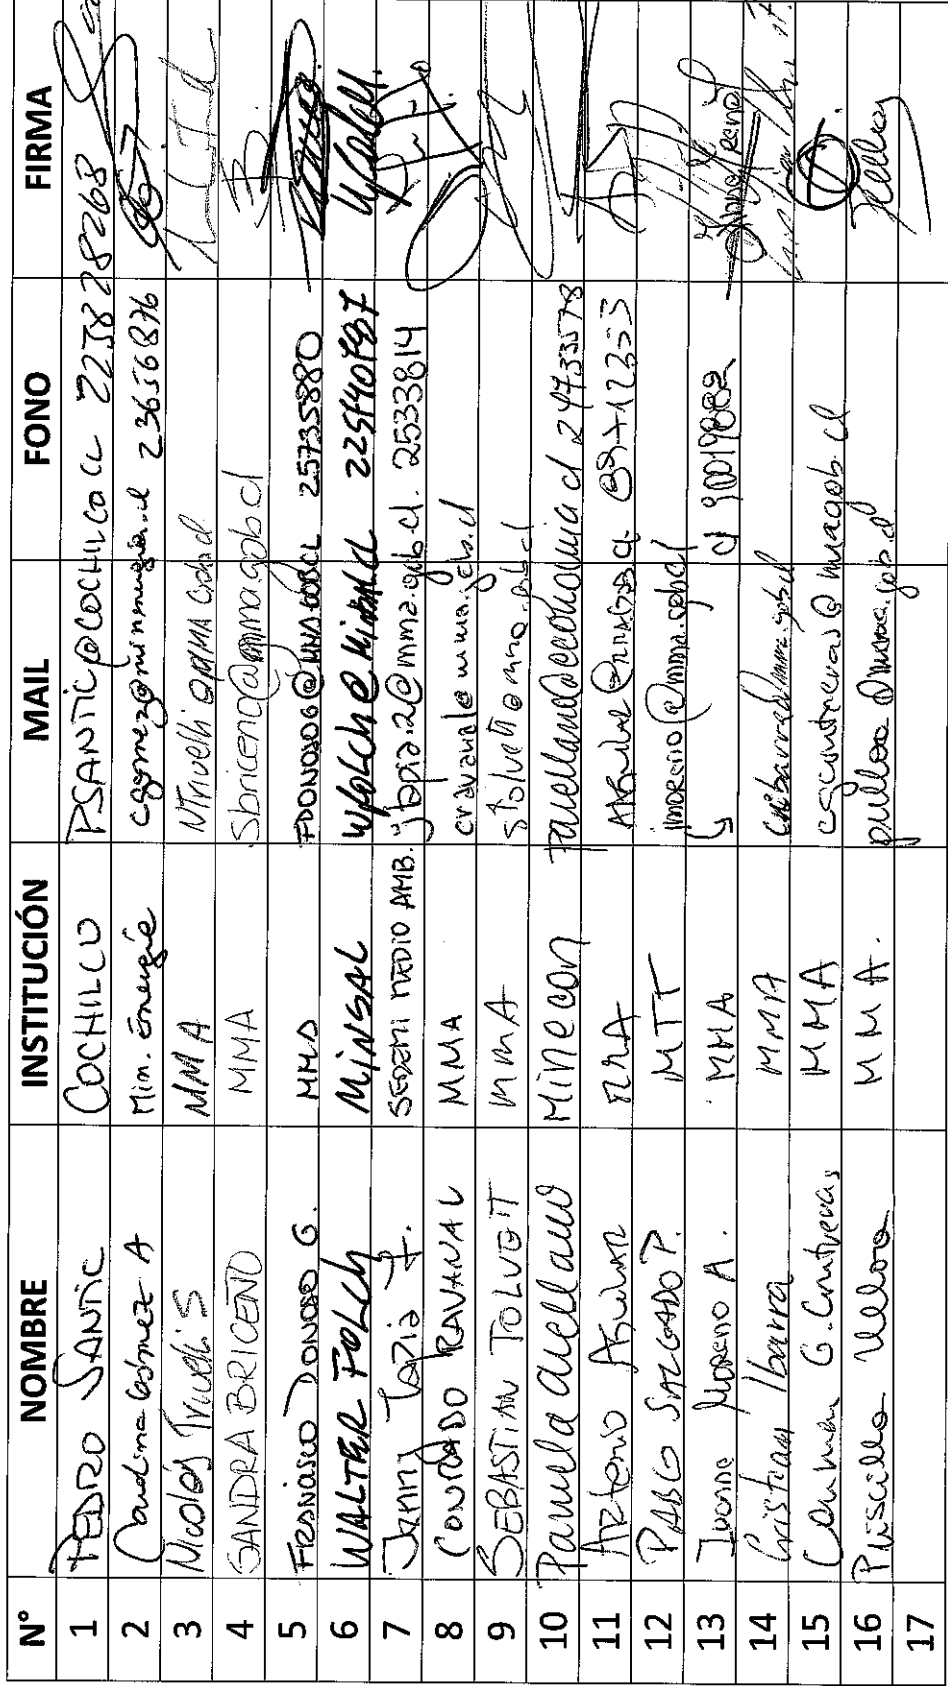 N° NOMBRE INSTITUCIÓN MAIL FONO FIRMA
1 PEDRO SANTIC COCHILCO PSANTIC@COCHILCO.CL 223828268
2 Carolina Gómez A Min. Energía cgomez@minenergia.cl 23656876
3 Nicolás Trivelli S MMA NTrivelli@MMA.gob.cl
4 SANDRA BRICEÑO MMA Sbriceno@mma.gob.cl
5 Francisco DONOSO G. MMA FDONOSOG@MMA.GOB.CL 25735880
6 WALTER FOLCH MINSAL wfolch@minsal.cl
7 Janny Tapia F. SEREMI MEDIO AMB. jtapia.2@mma.gob.cl. 2533814
8 CONRADO RAVANAL MMA cravanal@mma.gob.cl
9 SEBASTIAN TOLVETT MMA stolvett@mma.gob.cl
10 Pamela avellano Minecon Pavellano@economia.cl 24733578
11 Artemio Aguilar MMA AAguilar@mma.gob.cl
12 PABLO SALGADO P. MTT
13 Ivonne Moreno A. MMA imoreno@mma.gob.cl 90019882
14 Cristian Ibarra MMA cibarra@mma.gob.cl
15 Carmen G. Contreras MMA cgcontreras@mma.gob.cl
16 Priscilla Ulloa MMA. pulloa@mma.gob.cl
17